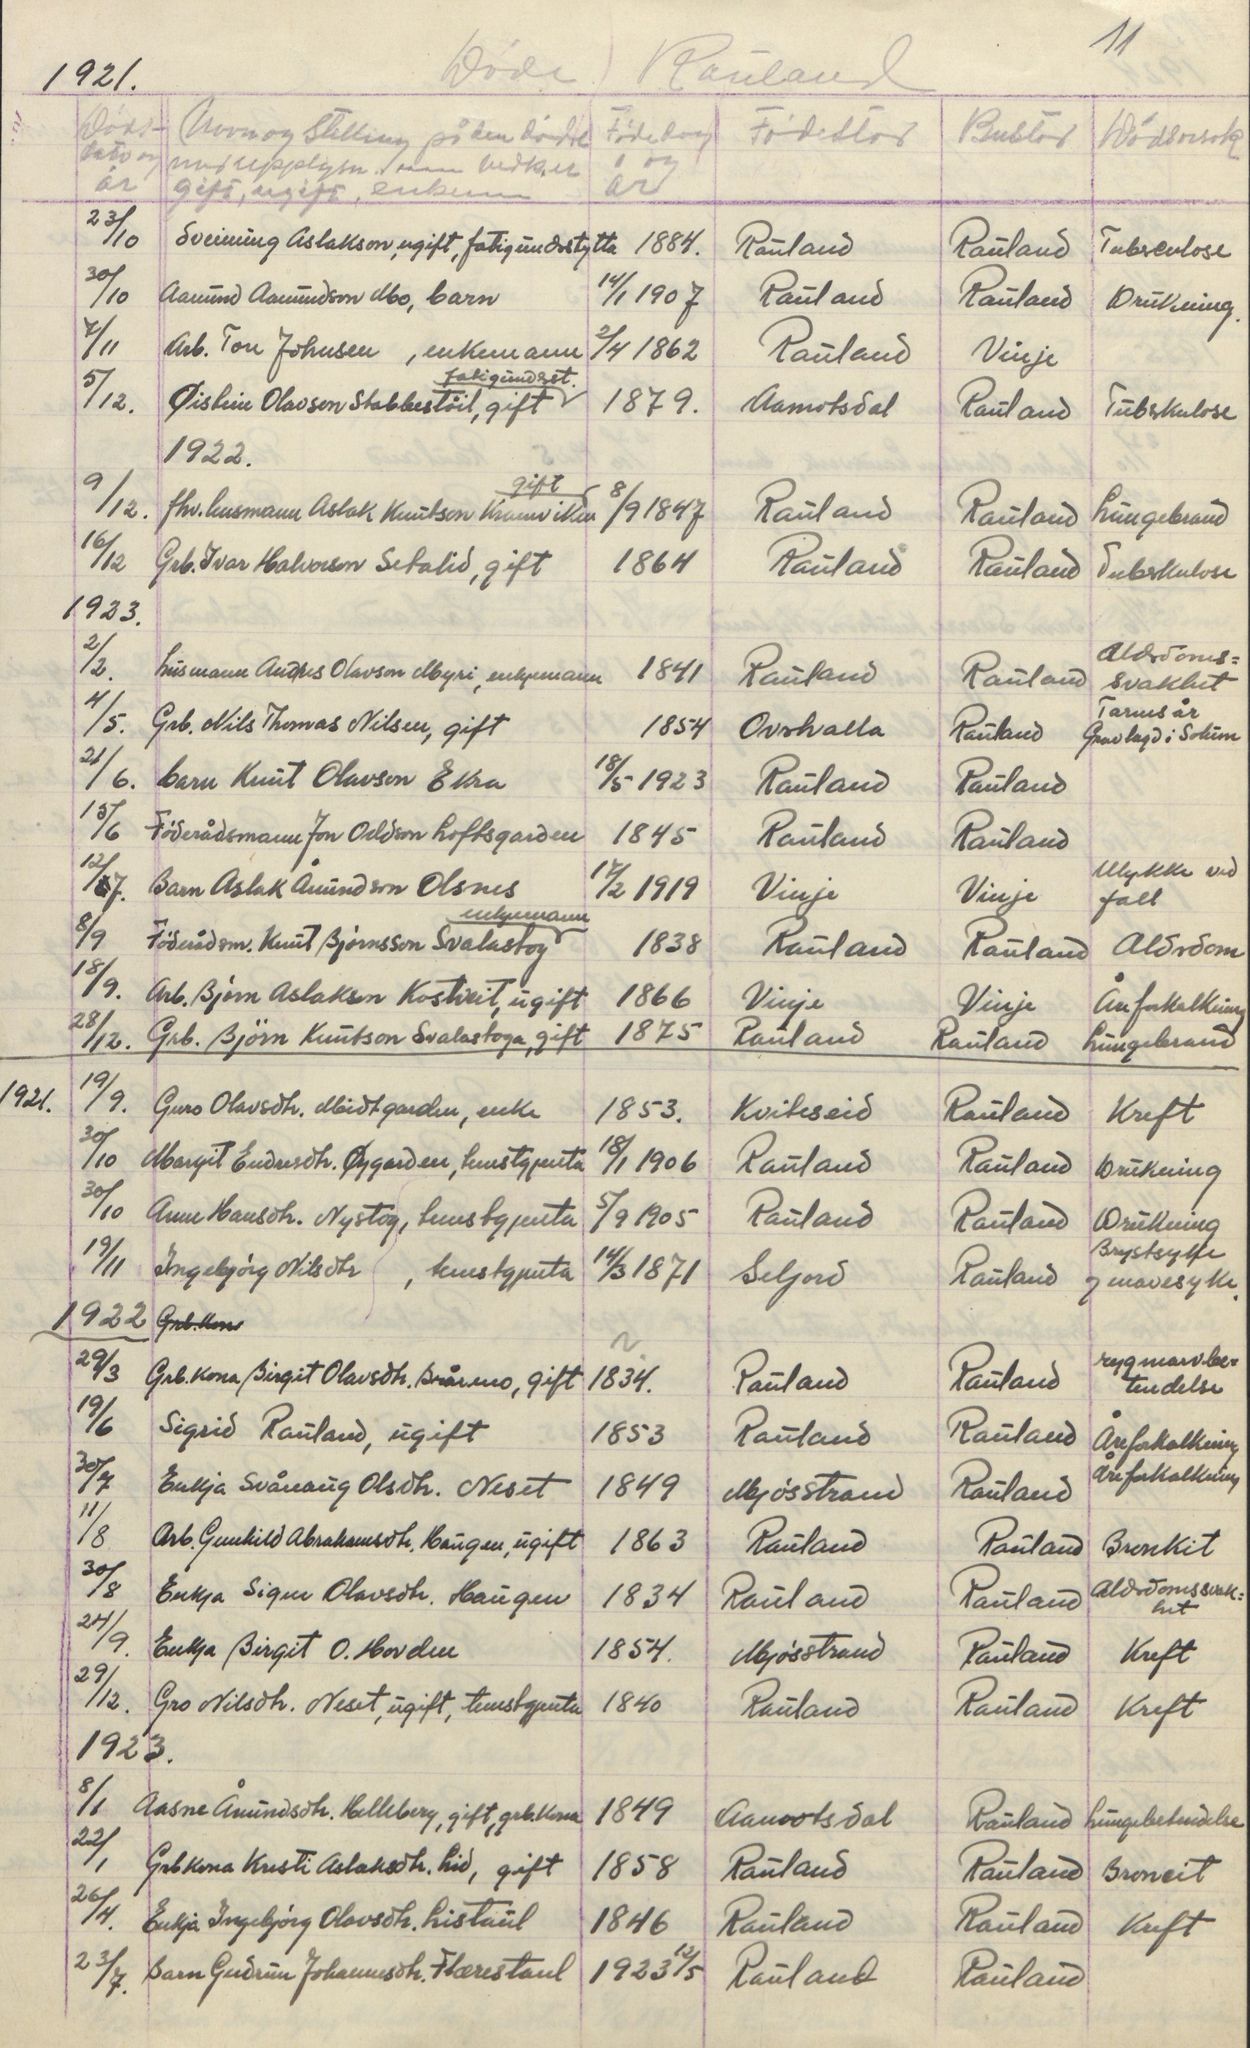 11
1921. Døde i Rauland
Døds- Navn og Stilling på den døde Fødedag Fødestad Bustad Dødsorsak
dato og med upplysn. um vedk. er og
år gift, ugift, enkem år
23/10 Sveinung Aslakson, ugift, fatigunderstytta 1884. Rauland Rauland Tuberculose
30/10 Aamund Aamundson Mo, barn 14/1 1907 Rauland Rauland Drukning.
7/11 Arb. Tor Johnsen, enkemann 2/4 1862 Rauland Vinje
fatigundst.
5/12. Øistein Olavson Stabbestöil, gift 1879. Aamotsdal Rauland Tuberkulose
1922.
gift
9/12. fhv. husmann Aslak Knutson Kromviken 8/9 1847 Rauland Rauland Lungebrand
16/12 Grb. Ivar Halvorson Setalid, gift 1864 Rauland Rauland Tuberkulose
1923.
2/2. husmann Andres Olavson Myri, enkjemann 1841 Rauland Rauland Alderdoms=
svakhet
4/5. Grb. Nils Thomas Nilsen, gift 1854 Overhalla Rauland Tarmsår
Gravlagd i Solum
21/6. barn Knut Olavson Ekra 18/5 1923 Rauland Rauland
15/6 Föderådsmann Jon Oddson Loftsgarden 1845 Rauland Rauland
12/7. Barn Aslak Åmundson Olsnes 17/2 1919 Vinje Vinje Ulykke ved
fall
enkjemann
8/9 Föderådsm. Knut Bjørnsson Svalastog 1838 Rauland Rauland Alderdom
18/9. Arb. Bjørn Aslakson Kostveit, ugift 1866 Vinje Vinje Åreforkalkning
28/12. Grb. Björn Knutson Svalastoga, gift 1875 Rauland Rauland Lungebrand
1921. 19/9. Guro Olavsdtr. Midtgarden, enke 1853. Kviteseid Rauland Kreft
30/10 Margit Endresdtr. Øygarden, tenestgjenta 18/1 1906 Rauland Rauland Drukning
30/10 Anne Hansdtr. Nystog, tenestgjenta 5/9 1905 Rauland Rauland Drukning
19/11 Ingebjørg Nilsdtr, tenestgjenta 14/3 1871 Seljord Rauland Brystsyke
og mavesyke.
1922 Grb. kon
29/3 Grb. kona Birgit Olavsdtr. Bråmo, gift 1834. Rauland Rauland rygmarvbe=
tendelse
19/6 Sigrid Rauland, ugift 1853 Rauland Rauland Åreforkalkning
30/7 Enkja Svånaug Olsdtr. Neset 1849 Mjøsstrand Rauland Åreforkalkning
11/8 Arb. Gunhild Abrahamsdtr. Haugen, ugift 1863 Rauland Rauland Bronkit
30/8 Enkja Signe Olavsdtr. Haugen 1834 Rauland Rauland Alderdomssvak=
het
24/9. Enkja Birgit O. Hovden 1854. Mjøsstrand Rauland Kreft
29/12. Gro Nilsdtr. Neset, ugift, tenestgjenta 1840 Rauland Rauland Kreft
1923.
8/1 Aasne Åmundsdtr. Helleberg, gift, grb. kona 1849 Aamotsdal Rauland Lungebetendelse
22/1 Grbkona Kresti Aslaksdtr. Lid, gift 1858 Rauland Rauland Broncit
26/4. Enkja Ingebjørg Olavsdtr. Listaul 1846 Rauland Rauland Kreft
23/7. Barn Gudrun Johannesdtr. Flærestaul 1923 12/5 Rauland Rauland